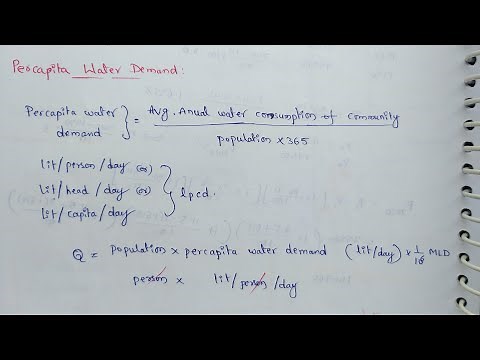 Percapita Water Demand:
Percapita water demand } = Avg. Anual water consumption of community / population × 365
lit/person/day (or)
lit/head/day (or) } lpcd.
lit/capita/day
Q = population × percapita water demand (lit/day) × 1/10⁶ MLD
person × lit/person/day